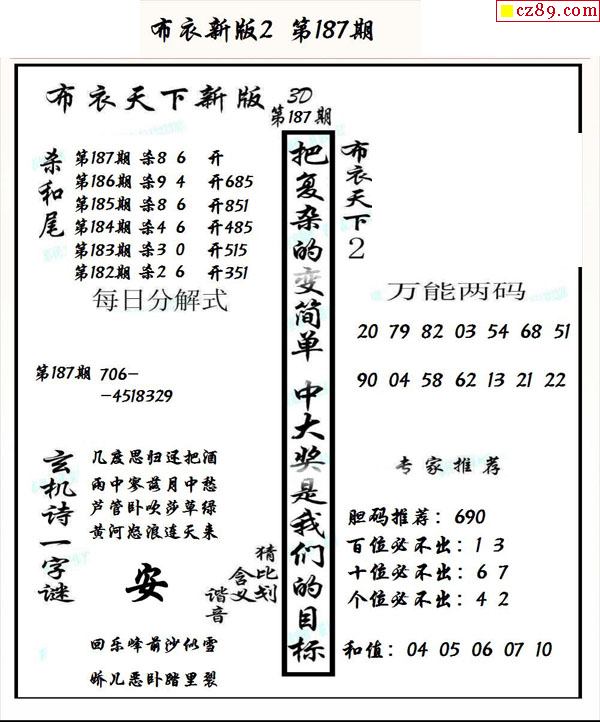 cz89.com
布衣新版2 第187期
布衣天下新版
3D
第187期
杀和尾
第187期 杀8 6 开
第186期 杀9 4 开685
第185期 杀8 6 开851
第184期 杀4 6 开485
第183期 杀3 0 开515
第182期 杀2 6 开351
每日分解式
第187期 706-
-4518329
玄机诗一字谜
几度思归还把酒
雨中寥落月中愁
芦管卧吹莎草绿
黄河怒浪连天来
安
猜比划
含义
谐音
回乐峰前沙似雪
娇儿恶卧踏里裂
把复杂的变简单 中大奖是我们的目标
布衣天下2
万能两码
20 79 82 03 54 68 51
90 04 58 62 13 21 22
专家推荐
胆码推荐：690
百位必不出：1 3
十位必不出：6 7
个位必不出：4 2
和值：04 05 06 07 10